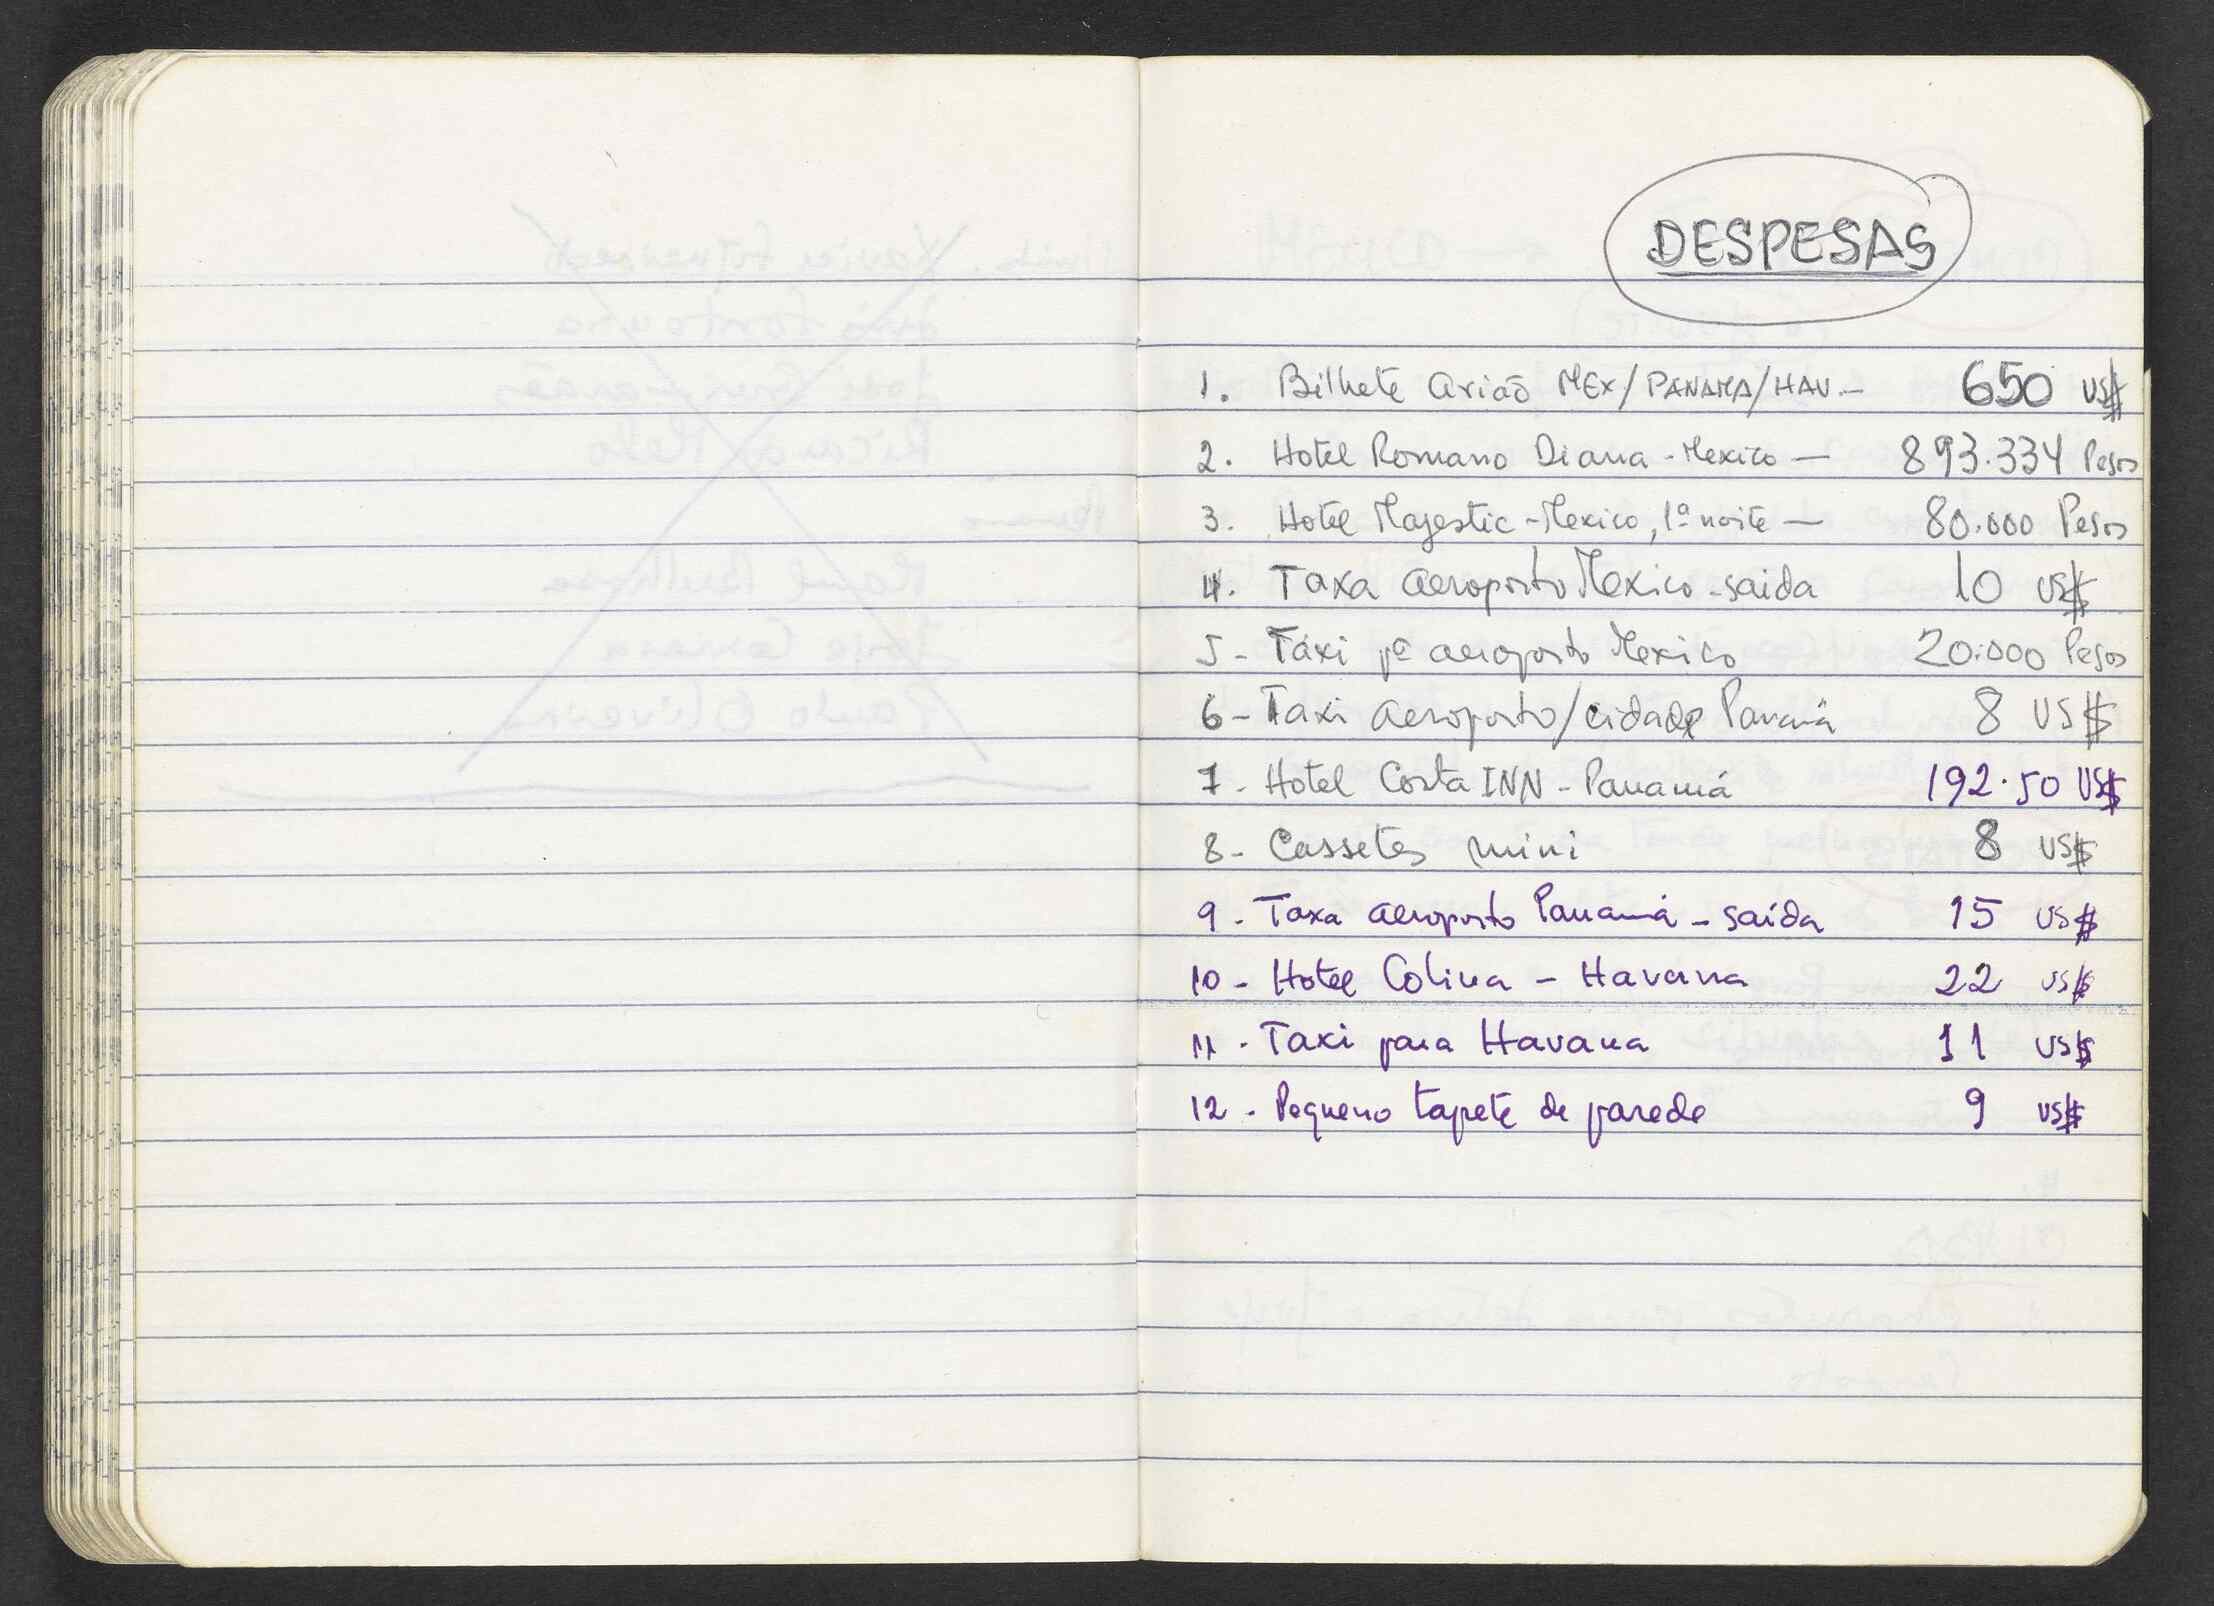 DESPESAS
1. Bilhete avião MEX/PANAMA/HAV. — 650 US$
2. Hotel Romano Diana - Mexico — 893.334 Pesos
3. Hotel Majestic - Mexico, 1ª noite — 80.000 Pesos
4. Taxa aeroporto Mexico - saida 10 US$
5 - Táxi pª aeroporto Mexico 20.000 Pesos
6 - Taxi aeroporto/cidade Panamá 8 US$
7 - Hotel Costa INN - Panamá 192.50 US$
8 - Cassetes mini 8 US$
9 - Taxa aeroporto Panamá - saída 15 US$
10 - Hotel Colina - Havana 22 US$
11 - Taxi para Havana 11 US$
12 - Pequeno tapete de parede 9 US$